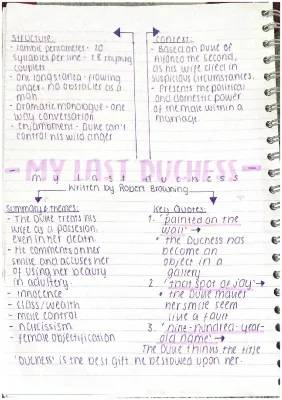 STRUCTURE:
- Iambic pentameter - 10
syllables per line - 28 rhyming
couplets
- One long stanza - flowing
anger - no obstacles as a
man
- Dramatic monologue - one
way conversation
- Enjambment - Duke can't
control his wild anger
CONTEXT:
- Based on Duke of
Alfonzo the second,
as his wife died in
suspicious circumstances.
- Presents the political
and domestic power
of the male within a
marriage.
- MY LAST DUCHESS -
My last duchess
written by Robert Browning
Summary & themes:
- The Duke treats his
wife as a possesion,
even in her death.
- He comments on her
smile and accuses her
of using her beauty
in adultery.
- innocence
- class/wealth
- male control
- narcissism
- female objectification
Key Quotes:
1. 'painted on the
wall' →
• the Duchess has
become an
object in a
gallery
2. 'that spot of joy' →
• the Duke makes
her smile seem
like a fault
3. 'nine-hundred-year-
old name' →
The Duke thinks the title
'Duchess' is the best gift he bestowed upon her.